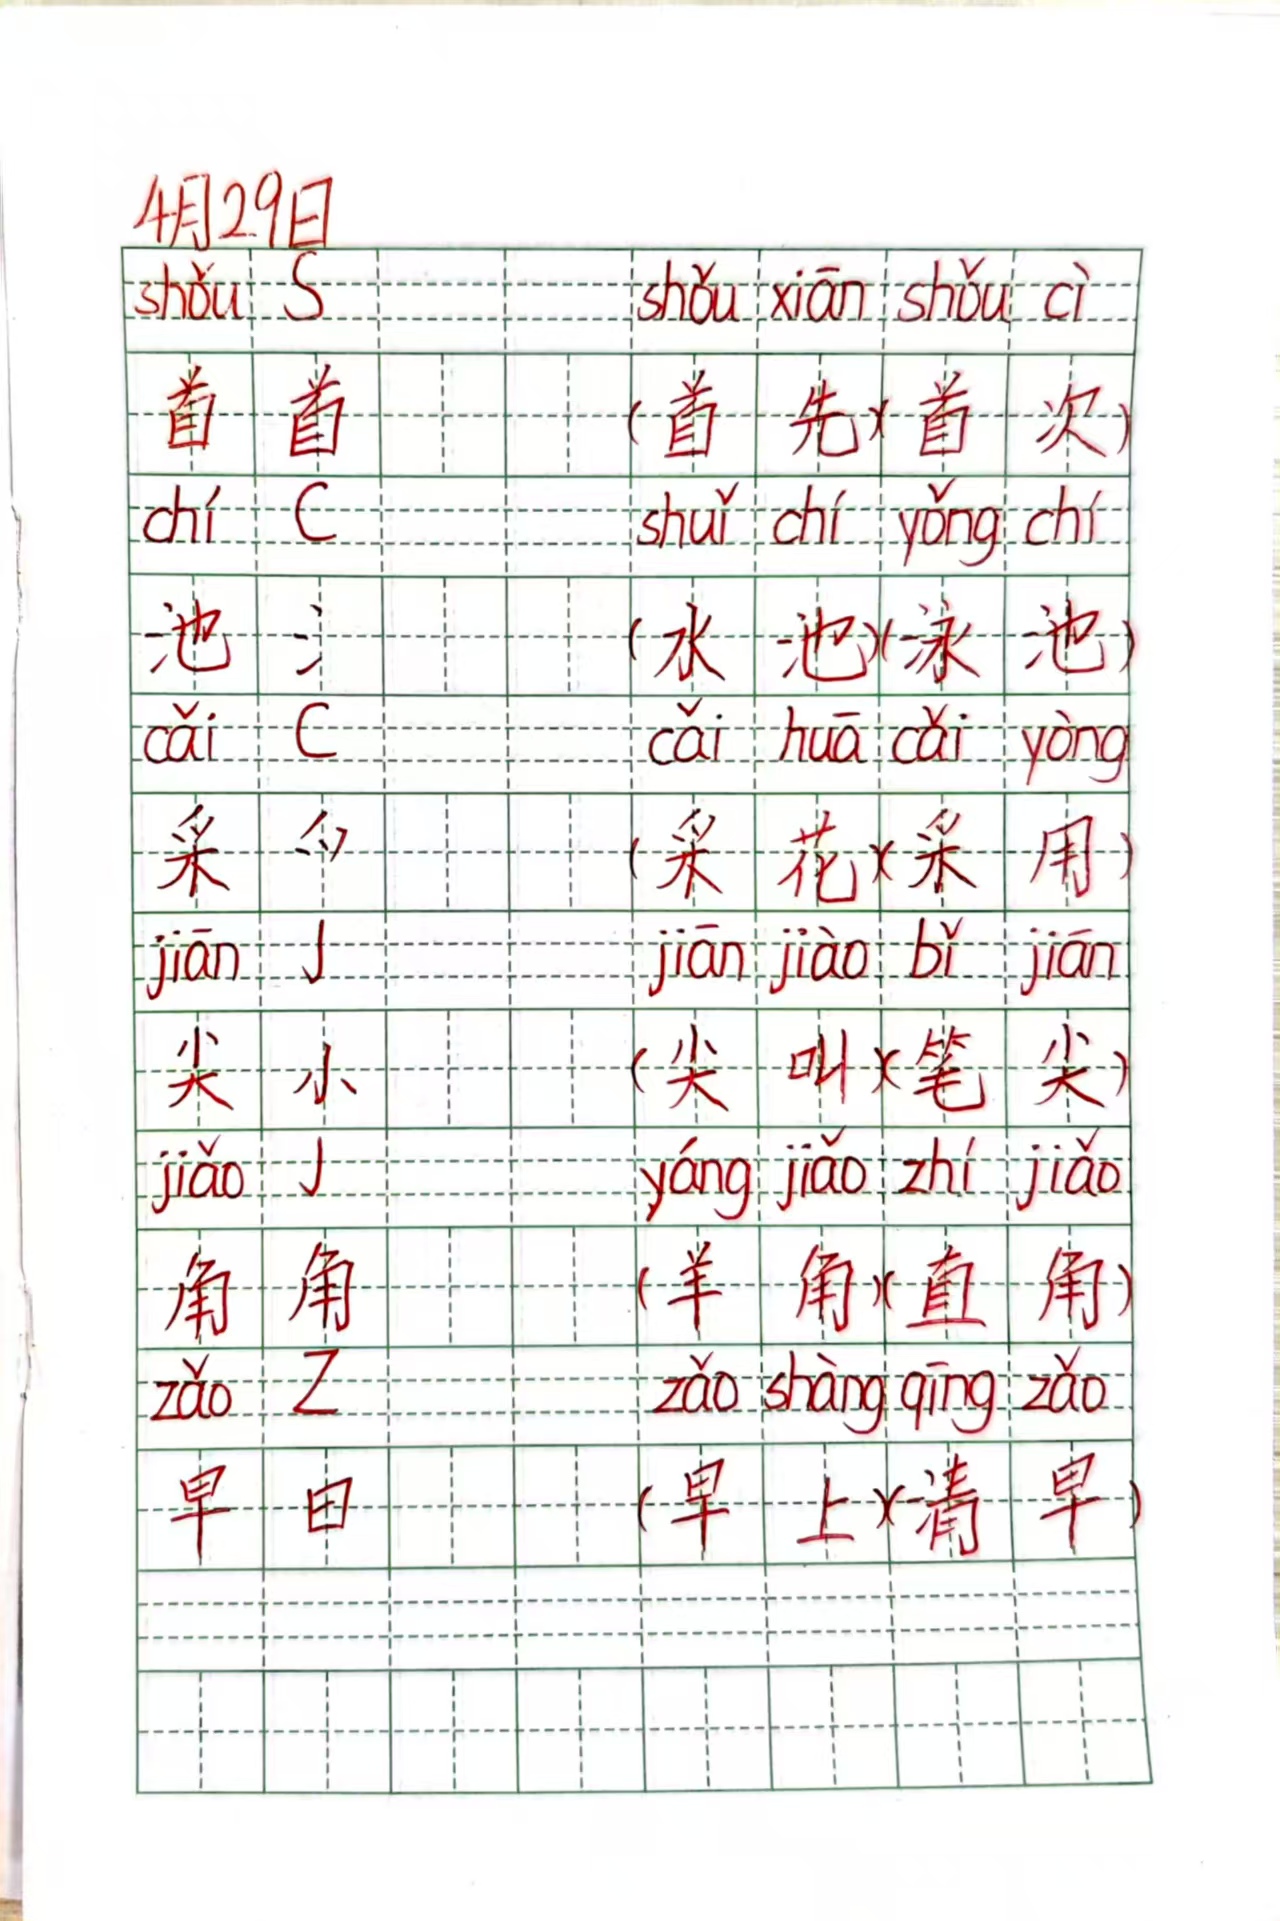 4月29日
shǒu S shǒu xiān shǒu cì
首 首 (首 先)(首 次)
chí C shuǐ chí yǒng chí
池 氵 (水 池)(泳 池)
cǎi C cǎi huā cǎi yòng
采 爫 (采 花)(采 用)
jiān J jiān jiào bǐ jiān
尖 小 (尖 叫)(笔 尖)
jiǎo J yáng jiǎo zhí jiǎo
角 角 (羊 角)(直 角)
zǎo Z zǎo shàng qīng zǎo
早 日 (早 上)(清 早)